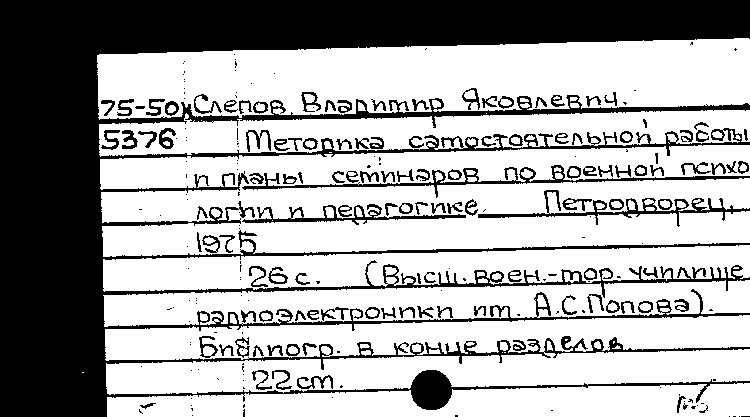 75-50х Слепов, Владимир Яковлевич.
5376 Методика самостоятельной работы
и планы семинаров по военной психо
логии и педагогике. Петродворец,
1975
26 с. (Высш. воен.-мор. училище
радиоэлектроники им. А.С. Попова).
Библиогр. в конце разделов.
22 cm.